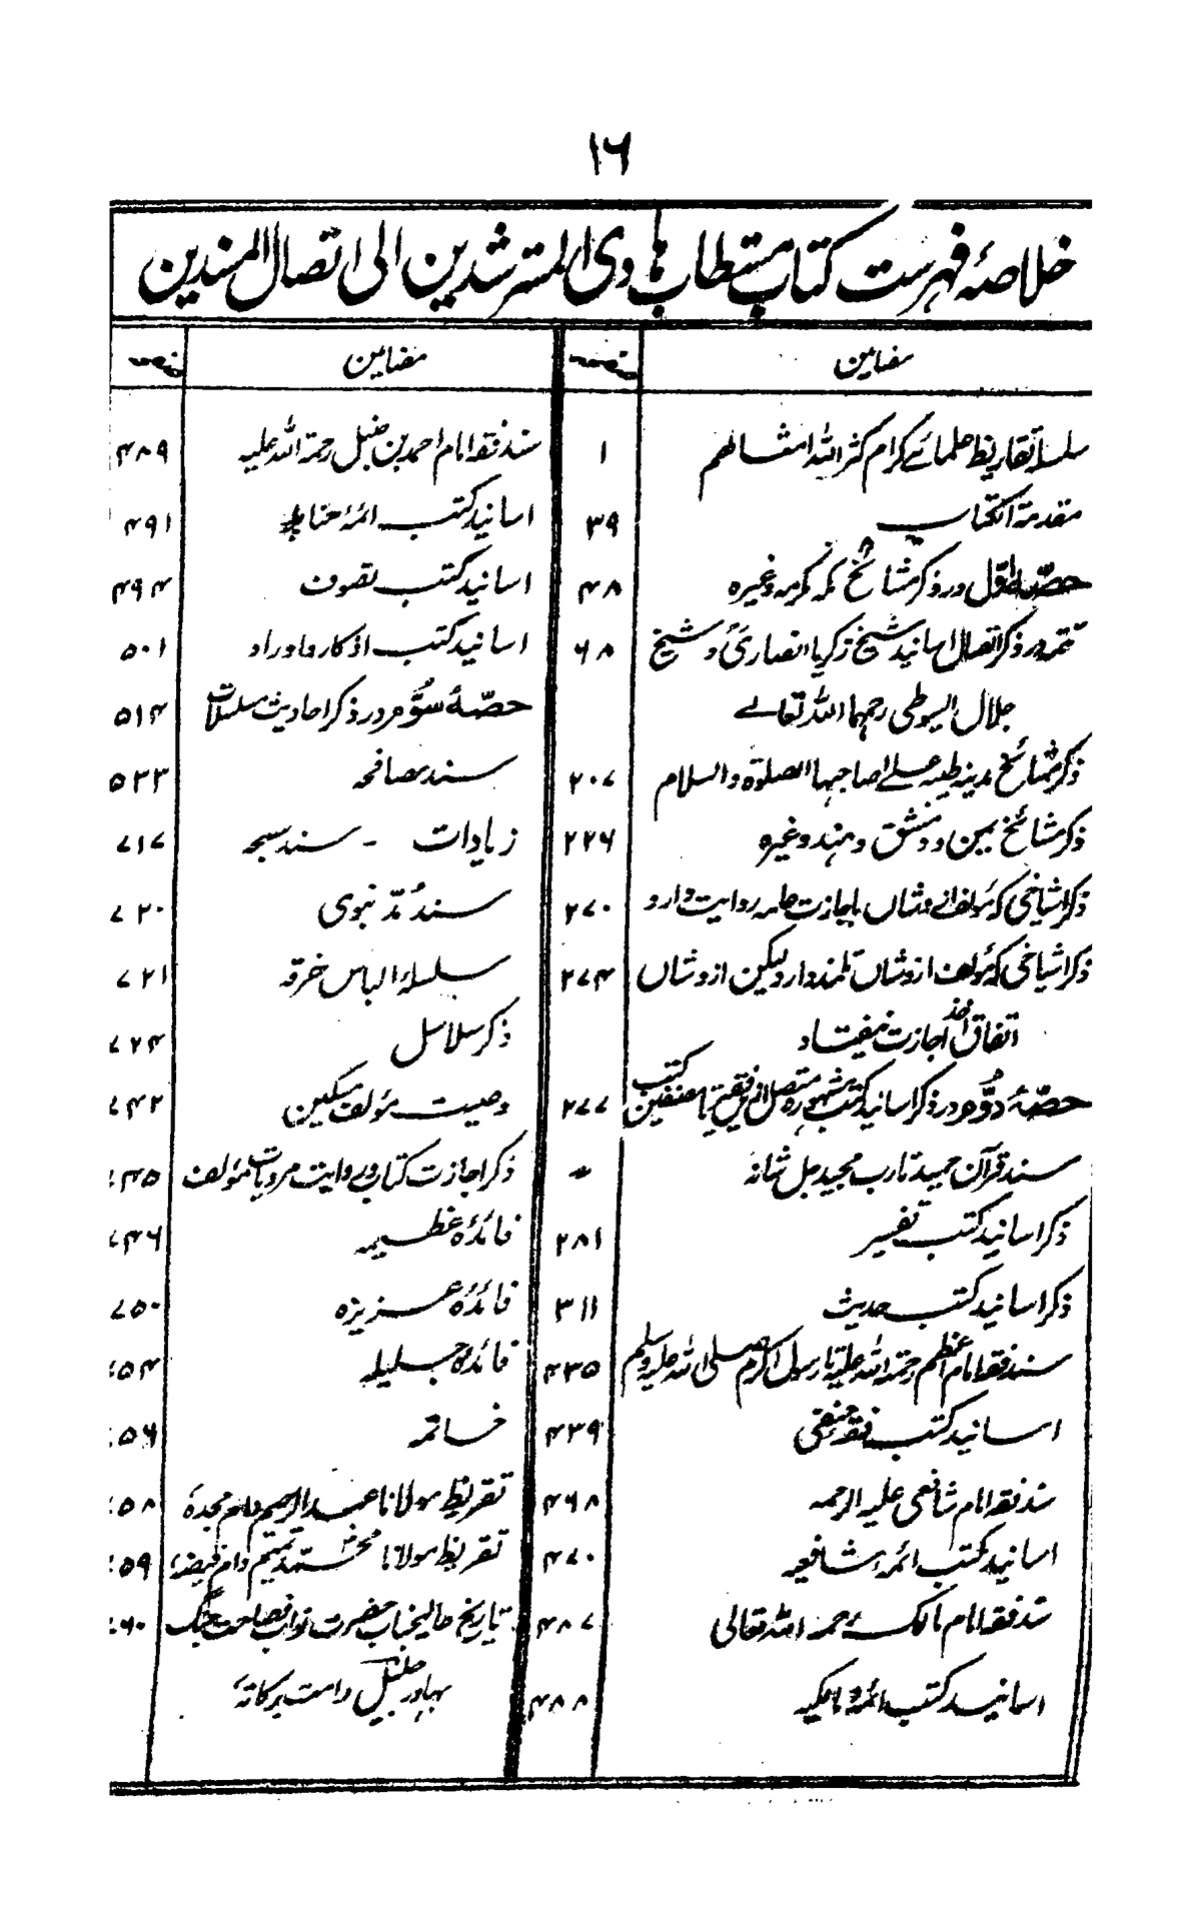 ۱۶
خلاصۂ فہرست کتاب مستطاب ہادی المسترشدین الی اتصال المسندین
مضامین
صفحہ
سلسلۂ تقاریظ علمائے کرام کثر اللہ امثالھم
۱
مقدمۃ الکتاب
۳۹
حصّۂ اوّل در ذکر مشائخ مکہ مکرمہ وغیرہ
۴۸
تتمہ در ذکر اتصال اسانید شیخ زکریا انصاریؒ و شیخ
۶۸
جلال السیوطی رحمہما اللہ تعالے
ذکر مشائخ مدینہ طیبہ علے صاحبہا الصلوۃ والسلام
۲۰۷
ذکر مشائخ یمن و دمشق و ہند وغیرہ
۲۲۶
ذکر اشیاخی کہ مؤلف از وشاں باجازت عامہ روایت دارد
۲۷۰
ذکر اشیاخی کہ مؤلف از وشاں تلمذ دارد لیکن از وشاں
۲۷۴
اتفاق اخذ اجازت نیفتاد
حصّۂ دوُّم در ذکر اسانید کتب مشہورہ متصل از فقیر تا مصنفین کتب
۲۷۷
سند قرآن حمید تا رب مجید جل شانہ
〃
ذکر اسانید کتب تفسیر
۲۸۱
ذکر اسانید کتب حدیث
۳۱۱
سند فقہ امام اعظم رحمۃ اللہ علیہ تا رسول اکرم صلی اللہ علیہ وسلم
۴۳۵
اسانید کتب فقہ حنفی
۴۳۹
سند فقہ امام شافعی علیہ الرحمہ
۴۶۸
اسانید کتب ائمہ شافعیہ
۴۷۰
سند فقہ امام مالک رحمہ اللہ تعالی
۴۸۷
اسانید کتب ائمۂ مالکیہ
۴۸۸
مضامین
صفحہ
سند فقہ امام احمد بن حنبل رحمۃ اللہ علیہ
۴۸۹
اسانید کتب ائمۂ حنابلہ
۴۹۱
اسانید کتب تصوف
۴۹۴
اسانید کتب اذکار و اوراد
۵۰۱
حصّۂ سوُّم در ذکر احادیث مسلسلات
۵۱۴
سند مصافحہ
۵۳۳
زیادات - سند سبحہ
۷۱۷
سند مُدّ نبوی
۷۲۰
سلسلۂ الباس خرقہ
۷۲۱
ذکر سلاسل
۷۲۴
وصیت مؤلف مسکین
۷۴۲
ذکر اجازت کتاب و روایت مرویات مؤلف
۷۴۵
فائدۂ عظیمہ
۷۴۶
فائدۂ عزیزہ
۷۵۰
فائدۂ جلیلہ
۷۵۴
خاتمہ
۷۵۶
تقریظ مولانا عبدالرحیم دام مجدہٗ
۷۵۸
تقریظ مولانا محمد تمیم دام فیضہٗ
۷۵۹
تاریخ عالیجناب حضرت نواب فصاحت جنگ
۷۶۰
بہادر جلیل دامت برکاتہٗ